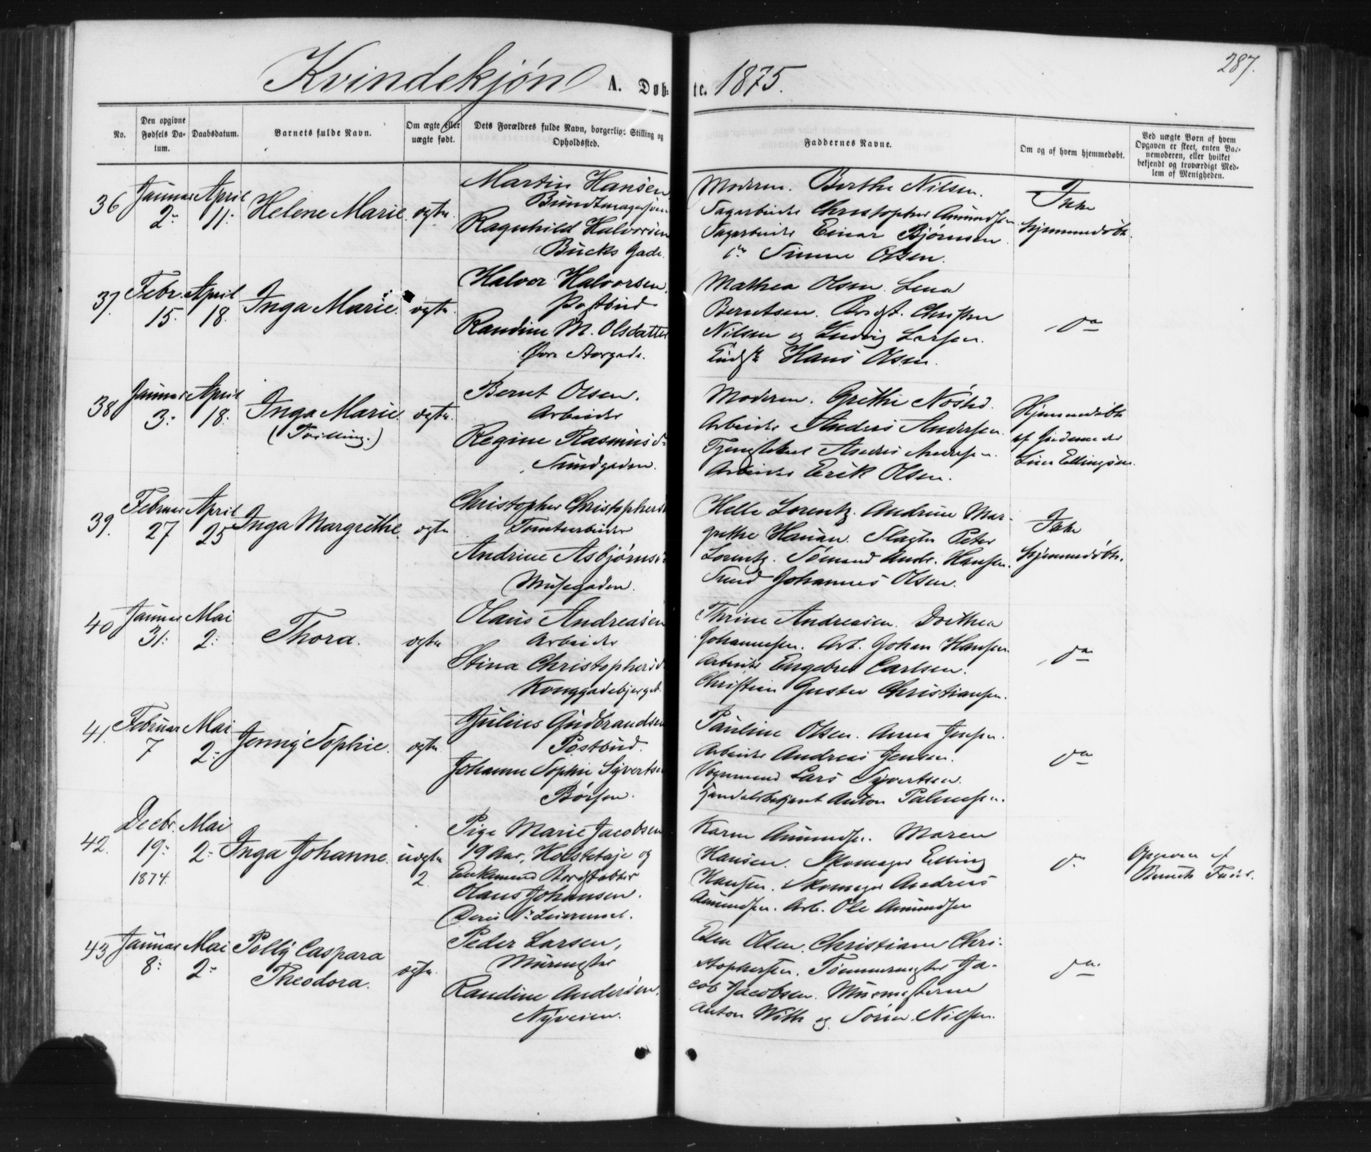 287.
Kvindekjøn A. Døb- te. 1875.
No.
Den opgivne Fødsels Datum.
Daabsdatum.
Barnets fulde Navn.
Om ægte eller uægte født.
Dets Forældres fulde Navn, borgerlige Stilling og Opholdssted.
Faddernes Navne.
Om og af hvem hjemmedøbt.
Ved uægte Børn af hvem Opgaven er skeet, enten Barnemoderen, eller hvilket bekjendt og troværdigt Medlem af Menigheden.
36 Januar 2: April 11: Helene Marie ægte.
Martin Hansen
Bundtmagersvend
Ragnhild Halvorsen
Bucks Gade.
Moderen. Berthe Nilsen.
Sagarbeider Christopher Amundsen
Sagarbeider Einar Bjørnsen
do Olsen.
Ikke
hjemmedøbt.
37. Febr. 15. April 18. Inga Marie. ægte.
Halvor Halvorsen.
Postbud
Randine M. Olsdatter
Øvre Torvgade.
Mathea Olsen. Lena
Berntsen. Christian
Nilsen og Ludvig Larsen.
Hans Olsen.
do
38 Januar 3: April 18. Inga Marie (Tvilling.) ægte.
Bernt Olsen.
Arbeider
Regine Rasmusd.
Sundgaden.
Moderen. Grethe
Arbeider Anders Andersen.
Andersen.
Arbeider Erik Olsen.
Hjemmedøbt
af Gjordemoder
Ellingsen.
39. Februar 27 April 25 Inga Margrethe ægte.
Christopher Christophersen
Tomtearbeider
Andrine Asbjørnsen
Musegaden.
Helle Lorentz. Andrine Mar-
grethe Hansen. Slagter Peter
Lorentz. Sømand Andr. Hansen.
Johannes Olsen.
Ikke
hjemmedøbt.
40 Januar 31: Mai 2: Thora. ægte
Olaus Andreasen
Arbeider
Stina Christophersd.
Konggadebjerget.
Thrine Andreasen. Dorthea
Johannesen. Arb. Johan Hansen
Arbeider Engebret Carlsen.
Gustav Christiansen.
do
41. Februar 7 Mai 2: Jenny Sophie. ægte
Julius Gudbrandsen
Postbud.
Johanne Sophie Syvertsen
Børsen.
Pauline Olsen. Anna Jensen.
Arbeider Andreas Jensen.
Vognmand Lars Syvertsen.
Handelsbetjent Anton Palmesen.
do
42. Decbr. 19: 1874. Mai 2: Inga Johanne. uægte 2.
Pige Marie Jacobsen
19 Aar, Holstetaje og
Enkemand
Olaus Johansen.
Karen Amundsen. Maren
Hansen. Skomager Elling
Hansen. Skomager Andreas
Amundsen. Arb. Ole Amundsen
do
Opgaven af
43. Januar 8: Mai 2: Polly Caspara Theodora. ægte.
Peder Larsen,
Murmester
Randine Andersen.
Nyveien.
Olsen. Christiane Chri-
stophersen. Tømmermester Ja-
cob Jacobsen. Murmesterne
Anton With og Søren Nilsen.
do